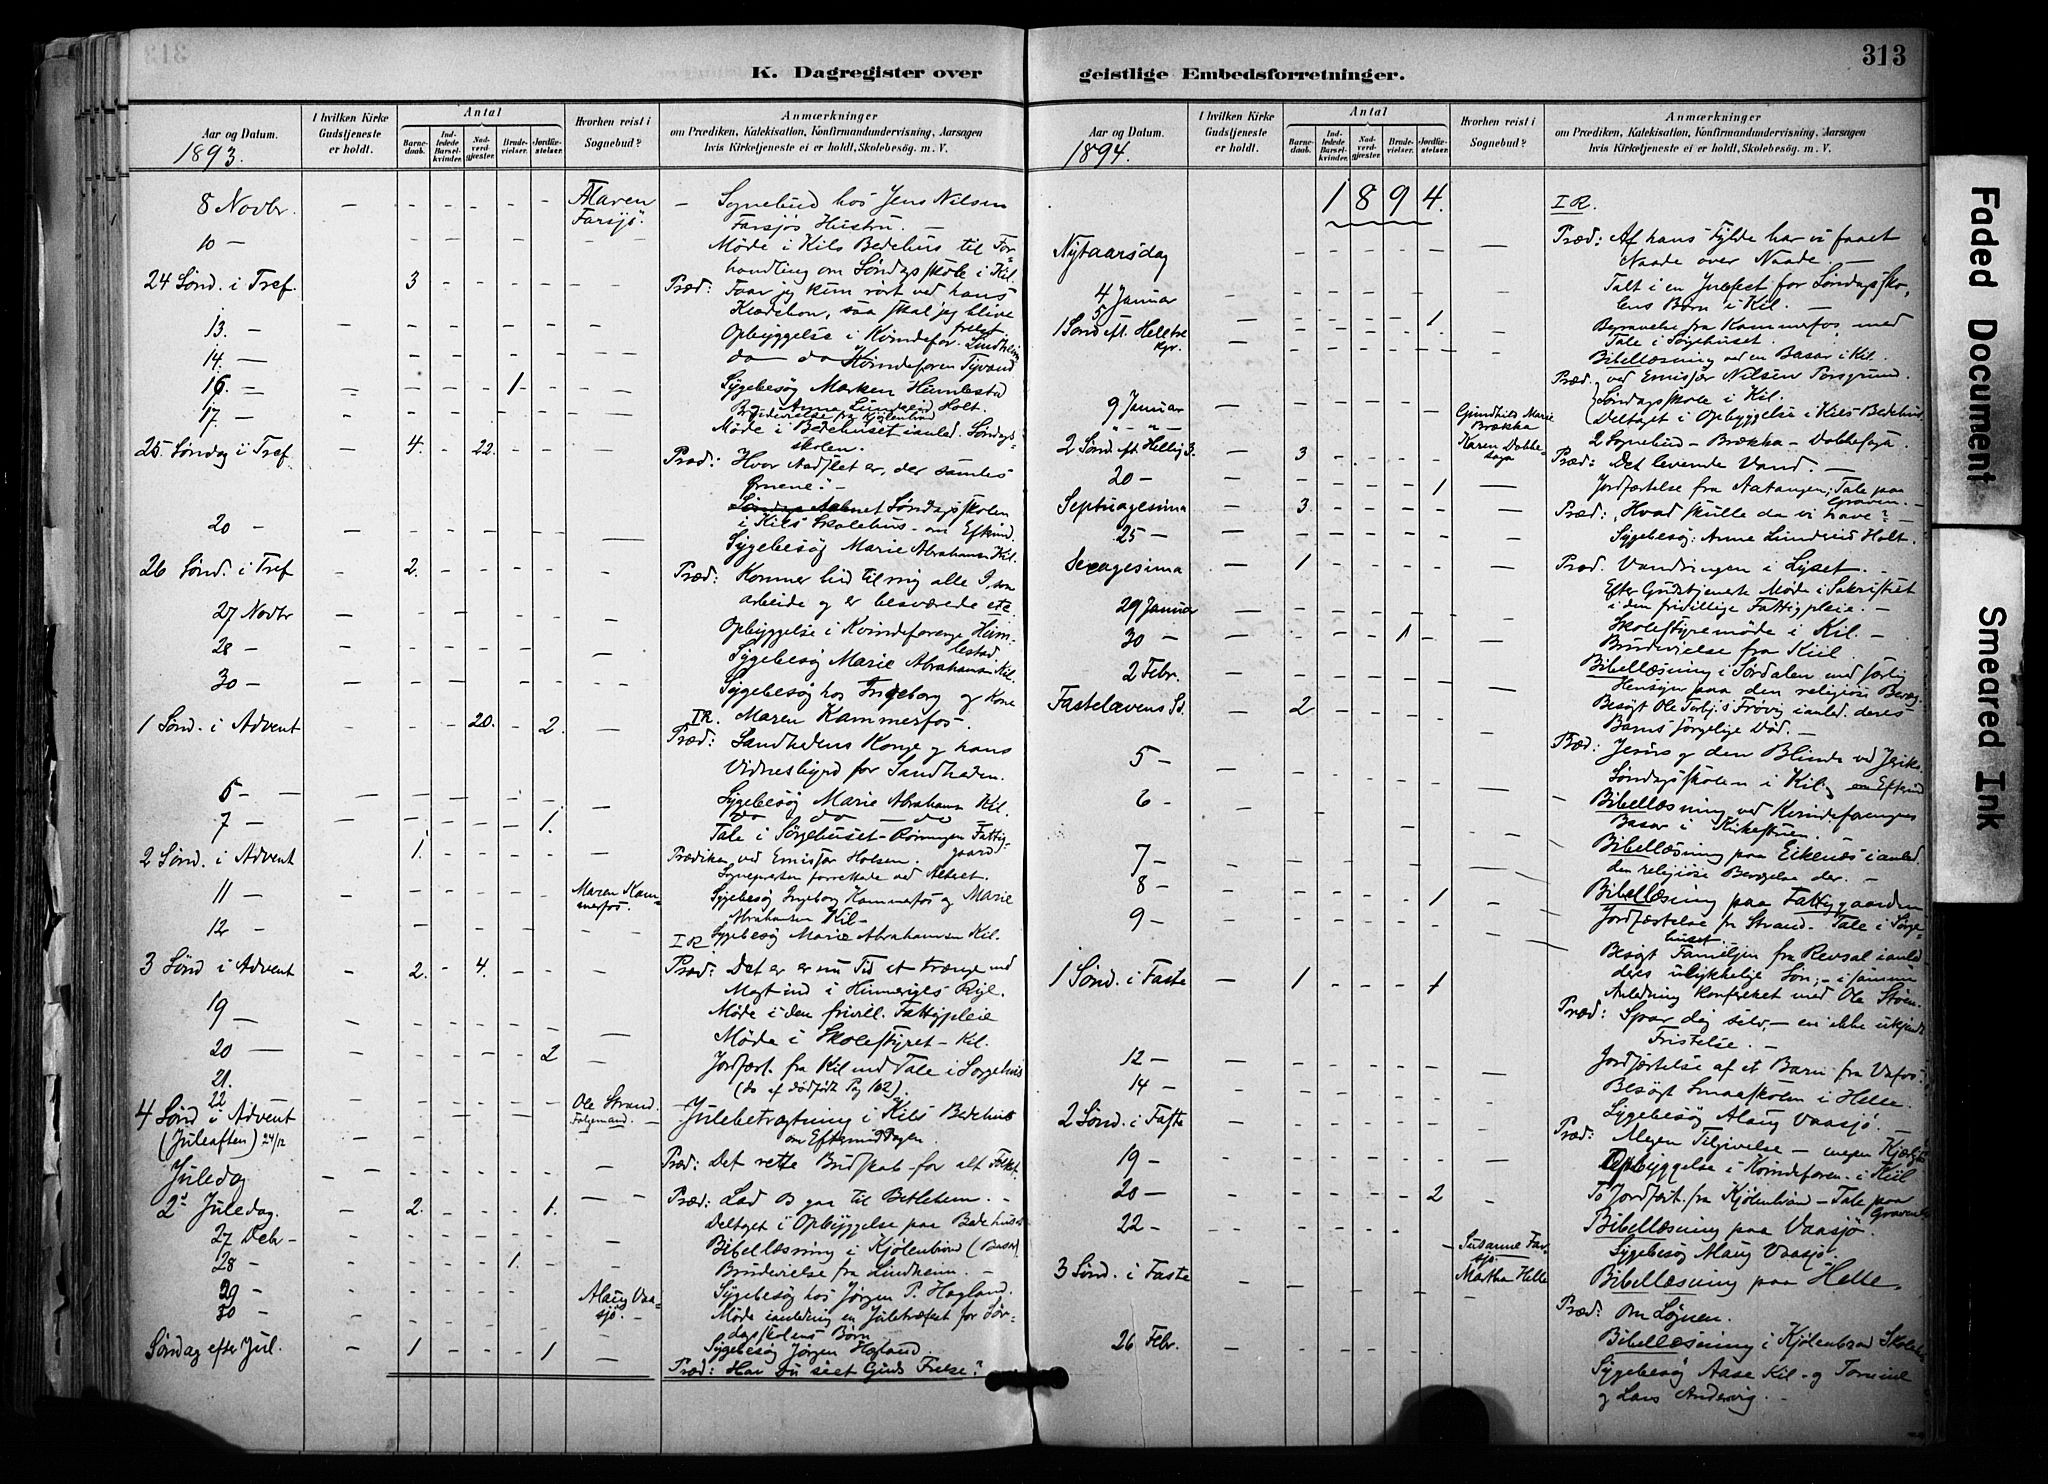 313
K. Dagregister over geistlige Embedsforretninger.
Aar og Datum.
1893.
I hvilken Kirke Gudstjeneste er holdt.
Antal
Barnedaab.
Indledede Barselkvinder.
Nadverdgjester.
Brudevielser.
Jordfæstelser.
Hvorhen reist i Sognebud?
Anmærkninger
om Prædiken, Katekisation, Konfirmandundervisning, Aarsagen
hvis Kirketjeneste ei er holdt, Skolebesøg. m. V.
8 Novbr. - - - - - - Maren Farsjø. - Sognebud hos Jens Nilsen
Farsjøs Hustru. -
10 - Møde i Kils Bedehus til For-
handling om Søndagsskole i Kil.
24 Sønd. i Tref. - 3 - - - - Præd: Faar jeg kun rørt ved hans
Klædebon, saa skal jeg blive
frelst.
13. - Opbyggelse i Kvindefor. Lindheim
14. - do do Kvindeforen Tyvand
16. - 1 - Sygebesøg Marken Heimlestad
Og Anne Lundereid Holt.
Brudevielse fra Kjølenbrød
17. - Møde i Bedehuset ianled. Søndags-
skolen.
25. Søndag i Tref - 4. - 22. - - Præd: Hvor Aadslet er, der samles
Ørnene. -
Aabnet Søndagsskolen
20 - i Kils Skolehus - om Eftmd.
Sygebesøg Marie Abrahamsen Kil.
26 Sønd. i Tref - 2. - - Præd: Kommer hid til mig alle I, som
arbeide og er besværede etc
27 Novbr - Opbyggelse i Kvindeforenge Heim-
lestad
28 - Sygebesøg Marie Abrahamsen Kil.
30 - Sygebesøg hos Ingeborg og Kone
Maren Kammerfos -
1 Sønd. i Advent - - - 20. - 2. - I R. Præd: Sandhedens Konge og hans
Vidnesbyrd for Sandheden.
5 - Sygebesøg Marie Abrahamsen Kil.
do do - do
7 - 1. - Tale i Sørgehuset - Rørningen Fattig-
gaard
2 Sønd. i Advent - 1. - Prædiken ved Emisær Holsen.
Sognepræsten forrettede ved Alteret.
11 - Maren Kammerfos. Sygebesøg Ingeborg Kammerfos og Marie
Abrahamsen Kil -
12 - Sygebesøg Marie Abrahamsen Kil.
I R
3 Sønd i Advent - 2. - 4. - - - Præd: Det er nu Tid at trænge med
Magt ind i Himmeriges Rige.
19 - Møde i den frivill. Fattigpleie
Møde i Skolestyret - Kil.
20 - 2 - Jordfæst. fra Kil med Tale i Sørgehus
21. (do af dødfødt Pag 102).
22 - Ole Strand. - Julebetragtning i Kils Bedehus
4 Sønd i Advent
(Juleaften) 24/12 - - om Eftermiddagen.
Juledag - - Præd: Det rette Budskab for alt Folket.
2d Juledag. - 2. - - - 1. Præd: Lad os gaa til Betlehem. -
Deltaget i Opbyggelse paa Bedehuset
27 Debr - Bibellæsning i Kjølenbrød (Basar)
28 - 1. - Brudevielse fra Lindheim. -
29 - Alaug Vaasjø. - Sygebesøg hos Jørgen P. Hagland.
30 - Møde ianledning en Juletræfest for Søn-
dagsskolens Børn
Søndag efter Jul. - 1 - - - 1 - Sygebesøg Jørgen Hagland.
Præd: Har Du seet Guds Frelse?
Aar og Datum.
1894.
I hvilken Kirke Gudstjeneste er holdt.
Antal
Barnedaab.
Indledede Barselkvinder.
Nadverdgjester.
Brudevielser.
Jordfæstelser.
Hvorhen reist i Sognebud?
Anmærkninger
om Prædiken, Katekisation, Konfirmandundervisning, Aarsagen
hvis Kirketjeneste ei er holdt, Skolebesøg. m. V.
1894.
I R.
Nytaarsdag - Præd: Af hans Fylde har vi faaet
Naade over Naade. -
4 Januar - Talt i en Julefest for Søndagssko-
lens Børn i Kil. -
5 - 1 - Begravelse fra Kammerfos, med
Tale i Sørgehuset.
1 Sønd eft. Helltre Kgr. - Bibellæsning ved en Basar i Kil.
Præd. ved Emisær Nilsen Porsgrund.
Søndagsskole i Kil.
9 Januar - Gunhild Marie Brækka Deltaget i Opbyggelse i Kils Bedehus
" - " - Karen Dobbesaga 2 Sognebud - Brækka - Dobbesaga
2 Sønd. eft. Hellig 3. - 3 - Præd: Det levende Vand. -
20 - 1 - Jordfæstelse fra Aatangen; Tale paa
Graven. -
Septuagesima - 3. - Præd: Hvad skulle da vi have? -
25 - Sygebesøg: Anne Lundereid Holt.
Sexagesima - 1 - Præd. Vandringen i Lyset. -
Efter Gudstjeneste Møde i Sakristiet
i den frivillige Fattigpleie. -
29 Januar - Skolestyremøde i Kil. -
30 - 1 - Brudevielse fra Kiil. -
2 Febr. - Bibellæsning i Sørdalen med særlig
Hensyn paa den religiøse Bevæg.
Fastelavens Sd. - 2 - Besøgt Ole Torbj's Frøvig ianled. deres
Barns sørgelige Død. -
Præd: Jesus og den Blinde ved Jeriko.
5 - Søndagsskolen i Kil, om Eftmd
6 - Bibellæsning ved Kvindeforeningens
Basar i Kirkestuen. -
7 - Bibellæsning paa Eikenæs ianled.
den religiøse Bevægelse der. -
8 - 1 - Bibellæsning paa Fattiggaarden
9 - Jordfæstelse fr Strand. Tale i Sørge-
huset.
Besøgt Familjen fra Revsal ianled
deres ulykkelige Søn; - i samme
Anledning konfereret med Ole Støen.
1 Sønd. i Faste - 1 - - - 1 Præd: Spar dig selv, - en ikke ukjendt
Fristelse. -
12 - Jordfæstelse af et Barn fra Vafos.
14 - Besøgt Smaaskolen i Helle.
Sygebesøg Alaug Vaasjø. -
2 Sønd. i Faste - Præd: Megen Tilgivelse - megen Kjærlighed
19 - Opbyggelse i Kvindeforen. i Kiil
20 - 2 - To Jordfæst. fra Kjølenbrød - Tale paa
Gravene.
22 - Bibellæsning paa Vaasjø.
Susanne Farsjø. Sygebesøg Alaug Vaasjø.
3 Sønd. i Faste - Martha Helle Bibellæsning paa Helle.
Præd: Om Løgnen.
26 Febr. - Bibellæsning i Kjølenbrød Skolehus
Sygebesøg Aase Kil - og Tomine
og Lars Andersvig. -
Faded Document
Smeared Ink